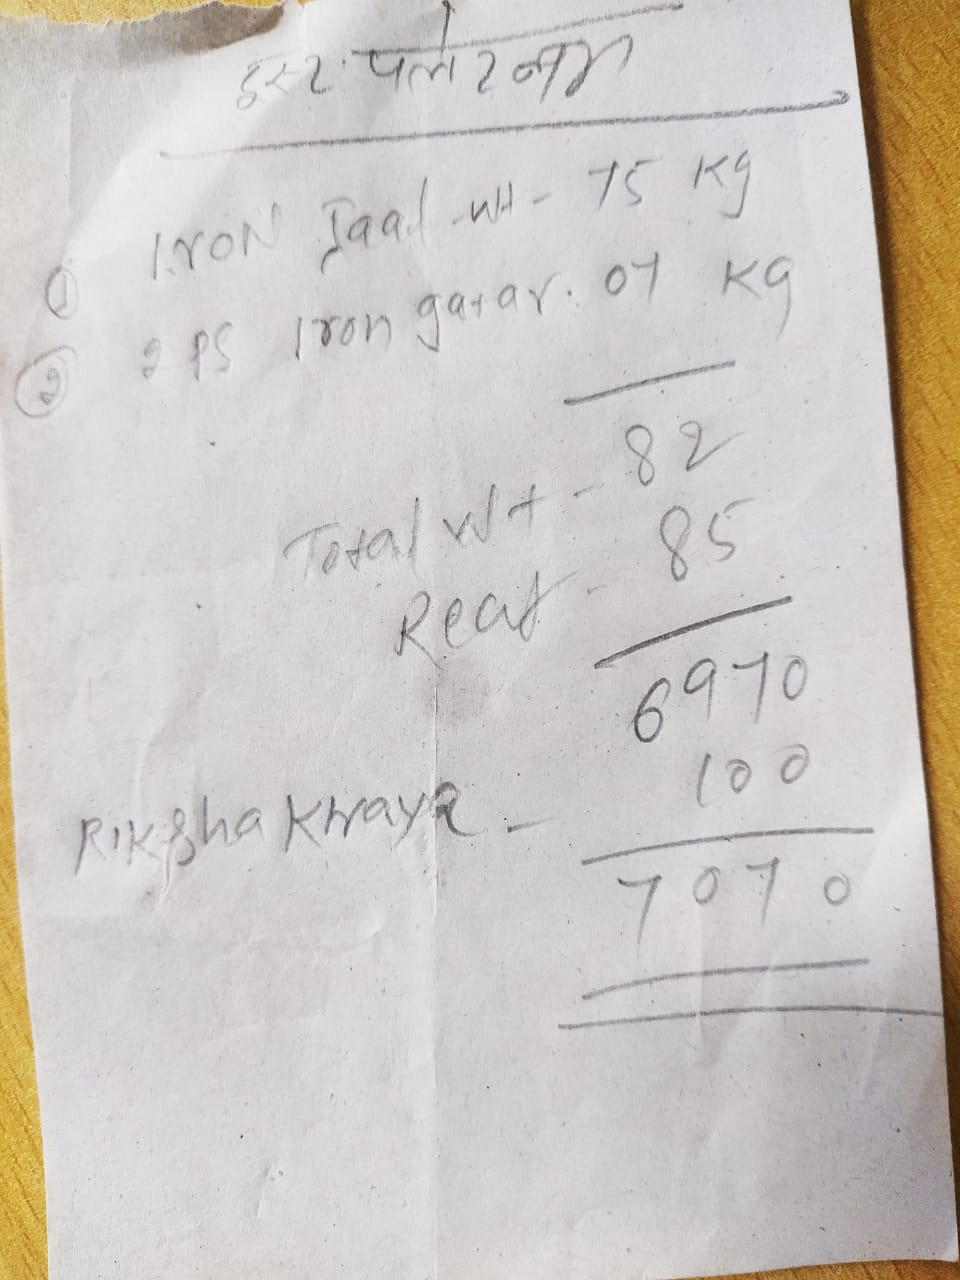 ① IRON Jaal wt - 75 Kg
② 2 PS Iron gatar. 07 Kg
Total wt - 82
Reat - 85
6970
Riksha Kiraya - 100
7070